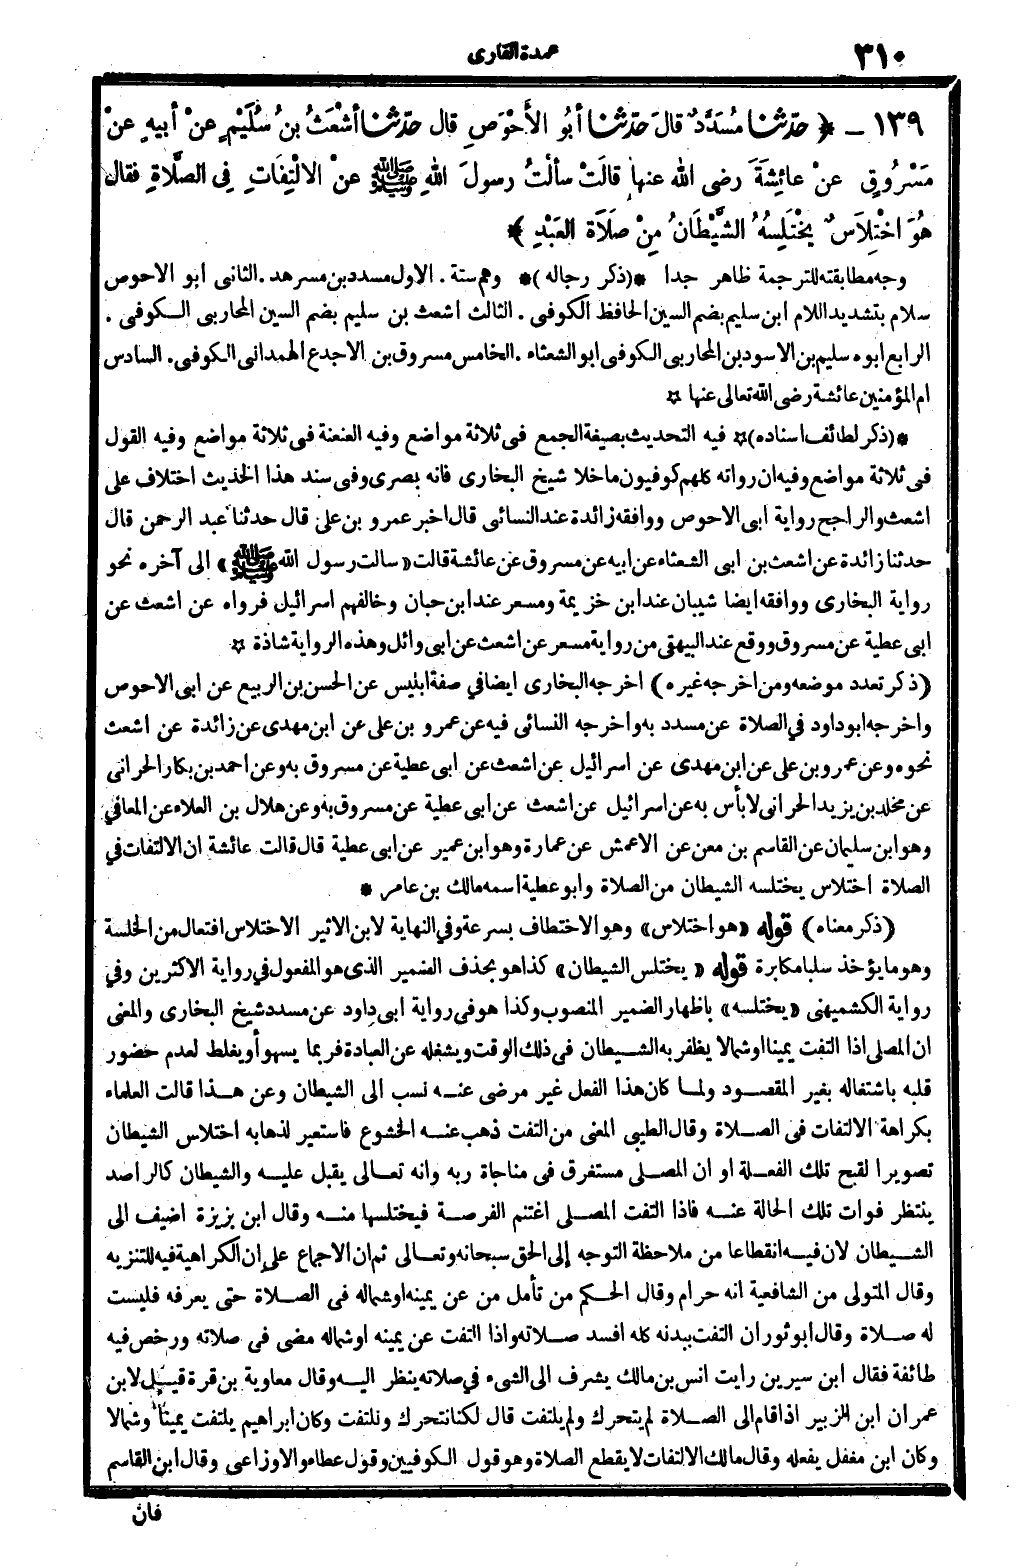 ٣١٠
عمدة القارى
١٣٩ ــ ﴿ حدّثنا مُسَدَّدٌ قالَ حدّثنا أبُو الأحْوَصِ قال حدّثنا أشْعَثُ بنُ سُلَيْمٍ عنْ أبيهِ عنْ
مَسْرُوقٍ عنْ عائِشَةَ رضى الله عنها قالَتْ سألْتُ رسولَ اللهِ ﷺ عنْ الالْتِفَاتِ فِى الصَّلاةِ فقال
هُوَ اخْتِلاَسٌ يخْتَلِسُهُ الشَّيْطَانُ مِنْ صَلاَةِ العَبْدِ ﴾
وجه مطابقته للترجمة ظاهر جدا *(ذكر رجاله)* وهم ستة . الاول مسدد بن مسرهد . الثانى ابو الاحوص
سلام بتشديد اللام ابن سليم بضم السين الحافظ الكوفى . الثالث اشعث بن سليم بضم السين المحاربى الـكوفى .
الرابع ابوه سليم بن الاسود بن المحاربى الكوفى ابو الشعثاء . الخامس مسروق بن الاجدع الهمدانى الكوفى . السادس
ام المؤمنين عائشة رضى الله تعالى عنها ☆
*(ذكر لطائف اسناده)☆ فيه التحديث بصيغة الجمع فى ثلاثة مواضع وفيه العنعنة فى ثلاثة مواضع وفيه القول
فى ثلاثة مواضع وفيه ان رواته كلهم كوفيون ما خلا شيخ البخارى فانه بصرى وفى سند هذا الحديث اختلاف على
اشعث والراجح رواية ابى الاحوص ووافقه زائدة عند النسائى قال اخبر عمرو بن على قال حدثنا عبد الرحمن قال
حدثنا زائدة عن اشعث بن ابى الشعثاء عن ابيه عن مسروق عن عائشة قالت «سالت رسول الله ﷺ» الى آخره نحو
رواية البخارى ووافقه ايضا شيبان عند ابن خزيمة ومسعر عند ابن حبان وخالفهم اسرائيل فرواه عن اشعث عن
ابى عطية عن مسروق ووقع عند البيهقى من رواية مسعر عن اشعث عن ابى وائل وهذه الرواية شاذة ☆
(ذكر تعدد موضعه ومن اخرجه غيره) اخرجه البخارى ايضا في صفة ابليس عن الحسن بن الربيع عن ابى الاحوص
واخرجه ابو داود في الصلاة عن مسدد به واخرجه النسائى فيه عن عمرو بن على عن ابن مهدى عن زائدة عن اشعث
نحوه وعن عمرو بن على عن ابن مهدى عن اسرائيل عن اشعث عن ابى عطية عن مسروق به وعن احمد بن بكار الحرانى
عن مخلد بن يزيد الحرانى لا بأس به عن اسرائيل عن اشعث عن ابى عطية عن مسروق به وعن هلال بن العلاء عن المعافي
وهو ابن سليمان عن القاسم بن معن عن الاعمش عن عمارة وهو ابن عمير عن ابى عطية قال قالت عائشة ان الالتفات في
الصلاة اختلاس يختلسه الشيطان من الصلاة وابو عطية اسمه مالك بن عامر *
(ذكر معناه) قوله «هو اختلاس» وهو الاختطاف بسرعة وفي النهاية لابن الاثير الاختلاس افتعال من الخلسة
وهو ما يؤخذ سلبا مكابرة قوله «يختلس الشيطان» كذا هو بحذف الضمير الذى هو المفعول في رواية الاكثرين وفي
رواية الكشميهنى «يختلسه» باظهار الضمير المنصوب وكذا هو فى رواية ابى داود عن مسدد شيخ البخارى والمعنى
ان المصلى اذا التفت يمينا او شمالا يظفر به الشـيطان فى ذلك الوقت ويشغله عن العبادة فربما يسهو أو يغلط لعدم حضور
قلبه باشتغاله بغير المقصـود ولمـا كان هذا الفعل غير مرضى عنـه نسب الى الشيطان وعن هـذا قالت العلماء
بكراهة الالتفات فى الصـلاة وقال الطيبى المعنى من التفت ذهب عنـه الخشوع فاستعير لذهابه اختلاس الشيطان
تصويرا لقبح تلك الفعلة او ان المصـلى مستغرق فى مناجاة ربه وانه تعـالى يقبل عليـه والشيطان كالراصد
ينتظر فوات تلك الحالة عنـه فاذا التفت المصـلى اغتنم الفرصـة فيختلسها منـه وقال ابن بزيزة اضيف الى
الشـيطان لان فيـه انقطاعا من ملاحظة التوجه إلى الحق سبحانه وتعـالى ثم ان الاجماع على ان الكراهية فيه للتنزيه
وقال المتولى من الشافعية انه حرام وقال الحـكم من تأمل من عن يمينه او شماله فى الصـلاة حتى يعرفه فليست
له صـلاة وقال ابو ثور ان التفت ببدنه كله افسد صـلاته واذا التفت عن يمينه او شماله مضى فى صلاته ورخص فيه
طائفة فقال ابن سيرين رايت انس بن مالك يشرف الى الشىء في صلاته ينظر اليـه وقال معاوية بن قرة قيـل لابن
عمران ابن الزبير اذا قام الى الصـلاة لم يتحرك ولم يلتفت قال لكنا نتحرك ونلتفت وكان ابراهيم يلتفت يمينا وشمالا
وكان ابن مغفل يفعله وقال مالك الالتفات لا يقطع الصلاة وهو قول الكوفيين وقول عطاء والاوزاعى وقال ابن القاسم
فان